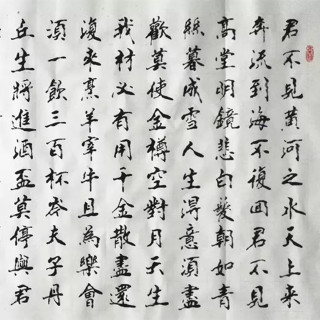 君不見黄河之水天上来
奔流到海不復回君不見
高堂明鏡悲白髮朝如青
絲暮成雪人生得意須盡
歡莫使金樽空對月天生
我材必有用千金散盡還
復来烹羊宰牛且為樂會
須一飲三百杯岑夫子丹
丘生將進酒盃莫停與君